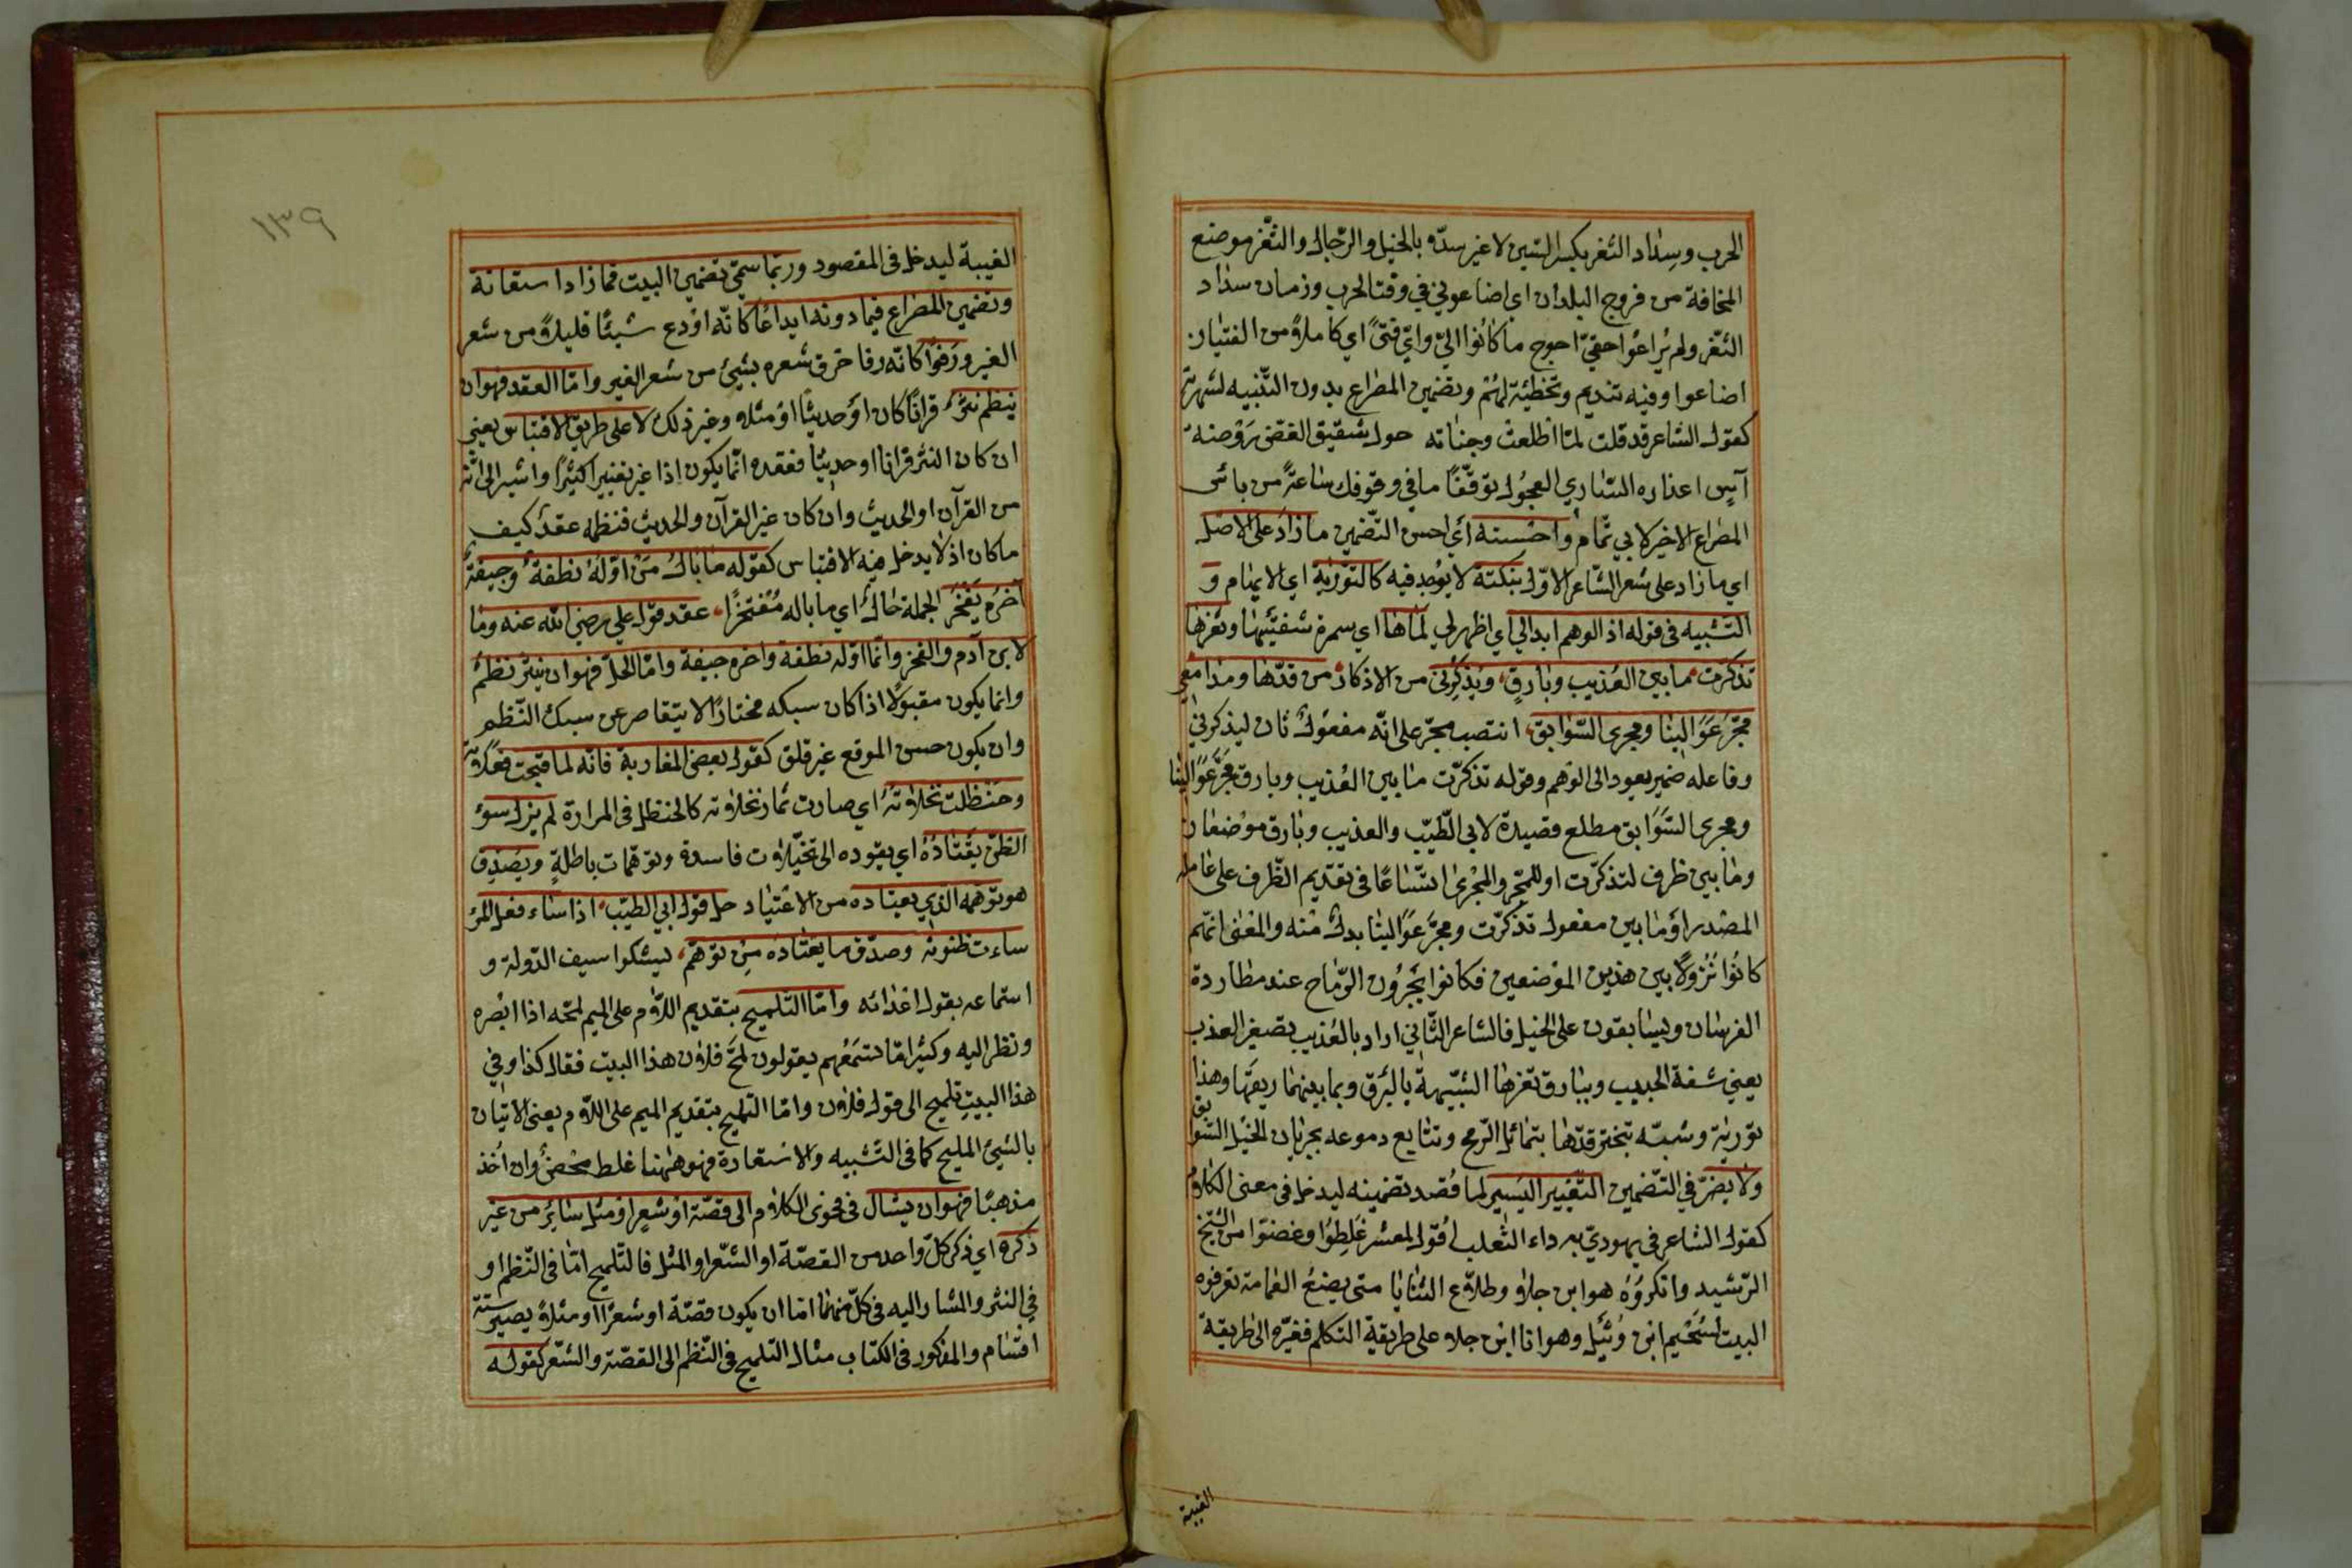 الحرب وسِداد الثغر بكسر السّين لا غير سدّه بالخيل والرّجال والثّغر موضع
المخافة من فروج البلدان اي اضاعوني في وقت الحرب وزمان سداد
الثّغر ولم يُراعُوا حقيّ احوج ما كانُوا اليّ وايّ فتىً اي كاملاً من الفتيان
اضاعوا وفيه تنديم وتخطئة لهُمْ وتضمين المصراع بدون التّنبيه لشهرته
كقوله الشاعر قد قلت لمّا اطلعتْ وجناته حول شقيق الغضّ رَوْضة
آسٍ اعذاره السّاري العجُول توقّفًا ما في وقوفك ساعةً من باس
المصراع الاخير لابي تمّام واحْسنه أي احسن التّضمين ما زادَ على الاصْل
اي ما زاد على شعر الشّاعر الاوّل بنكتة لا يوُجد فيه كالتوْرية اي الايهام و
التّشبيه في قوله اذ الوهم ابدا لي اي اظهر لي لمَاها اي سمرة شفتَيْها وثغرها
تذكرّت ما بين العُذيب وبارقٍ، ويُذكِرُني من الاذكار من قدّها ومدامعي
مجَرَّ عَوَالينا ومجرى السّوابق، انتصب مجرّ على انّه مفعوُلٌ ثان ليذكرني
وفاعله ضمير يعود الى الوَهم وقوله تذكرّت ما بين العُذيب وبارق مجَرَّ عَوَالينا
ومجرى السَّوَابق مطلع قصيدة لابي الطّيّب والعذيب وبارق موْضعان
وما بين ظرف لتذكرّت او للمجّر والمجْرى اتّساعًا في تقدّيم الظّرف على عامله
المصْدر اوْ ما بين مفعول تذكرّت ومجرَّ عَوَالينا بدلٌ منه والمعْنى انّهم
كانُوا نُزولاً بين هذين الموْضعين فكانوا يجَرُّون الرّماح عند مطاردة
الفرسان ويسابقون على الخيل فالشاعر الثّاني اراد بالعُذيب تصغير العذب
يعني شفة الحبيب وببارق ثغرها الشّبيهة بالبَرق وبما بينهما ريقَها وهذا
توريَة وشبّه تبختر قدّها بتمائل الرّمح وتتابع دموعه بجريان الخيْل السّوابق
ولا يضرّ في التّضمين التّغيير اليَسير لما قُصد تضمينه ليدخل في معنى الكلام
كقول الشاعر في يهوديّ به داء الثّعلب اقُول لمعشر غَلِطوُا وغضوّا من الشّيخ
الرّشيد وانكروُه هو ابن جلا وطلاّع الثنايا متى يضعُ العمامة تعرفوه
البيت لسُحَيْم ابن وُثَيل وهو انا ابن جلا على طريقة التكلم فغيّره الى طريقة
الغيبة
١٣٩
الغيبة ليدخل في المقصود وربمّا سمّي تضمين البيت فما زاد استعانة
وتضمين المصْراع فيما دونه ابداعًا كانّه اوْدع شيئًا قليلاً من شعر
الغير ورَفوًا كانّه رفا خرق شعره بشيئ من شعر الغير وامّا العقد فهو ان
ينظم نثرٌ قرانًا كان اوْ حديثًا اوْ مثله وغير ذلك لا على طريق الاقتباس يعني
ان كان النثر قرانا او حديثا فعقده انّما يكون اذا غيّر تغييرا كثيرًا واشير الى انّه
من القرآن او الحديث وان كان غير القرآن والحديث فنظمه عقدٌ كيف
ما كان اذ لا يدخل فيه الاقتباس كقوله ما بالُ مَنْ اوّلهُ نطفةٌ وجيفةٌ
آخرُه يَفْخَر الجملة حالٌ اي ما باله مُفتخرًا، عقد قول علي رضي الله عنه وما
لابن آدم والفخر وانّما اوّله نطفة واخره جيفة وامّا الحلّ فهو ان ينثر نظمٌ
وانما يكون مقبوَلاً اذا كان سبكه مختارًا لا يتقاصر عن سبك النّظم
وان يكون حسن الموقع غير قلق كقول بعض المغاربة فانّه لما قبحت فعَلاته
وحَنْظلت نخلاَته اي صارت ثمار نخلاَته كالحنظل في المرارة لم يزل سوُء
الظنّ يَقْتادُهُ اي يقوده الى تخيّلات فاسدة وتوهّمات باطلةٍ ويصَدِق
هو توهمه الذي يعتاده من الاعْتياد حل قول ابي الطيّب، اذا ساء فعل المرْء
ساءت ظنونه وصدّق ما يعْتادُه مِن توَهّم، ليشكوا سيف الدّولة و
استماعه بقول اعْدائه وامّا التلميح بتقديم اللّام على الميم لمحَه اذا ابْصره
ونظر اليه وكثيرا مّا تسَمَعُهم يقولون لمحَّ فلان هذا البيت فقال كذا وفي
هذا البيتِ تلميح الى قول فلان وامّا التمليح بتقديم الميم على اللّام يعنى الاتيان
بالشيئ المليح كما في التّشبيه والاسْتعارة فهو ههُنا غلط محْضٌ وان اُخذ
مذهبًا فهو ان يشار في فحوى الكلام الى قصّة اوْ شعٍر اوْ مثل سايُر من غير
ذكره اي ذكر كلّ واحد من القصّة او الشّعر او المثل فالتّلميح امّا في النّظم او
في النثر والمشار اليه في كلّ منهما امّا ان يكون قصّة او شعرًا او مثلاً يصير ستّة
اقسَام والمذكور في الكتاب مثال التلميح في النّظم الى القصّة والشّعر كقوله